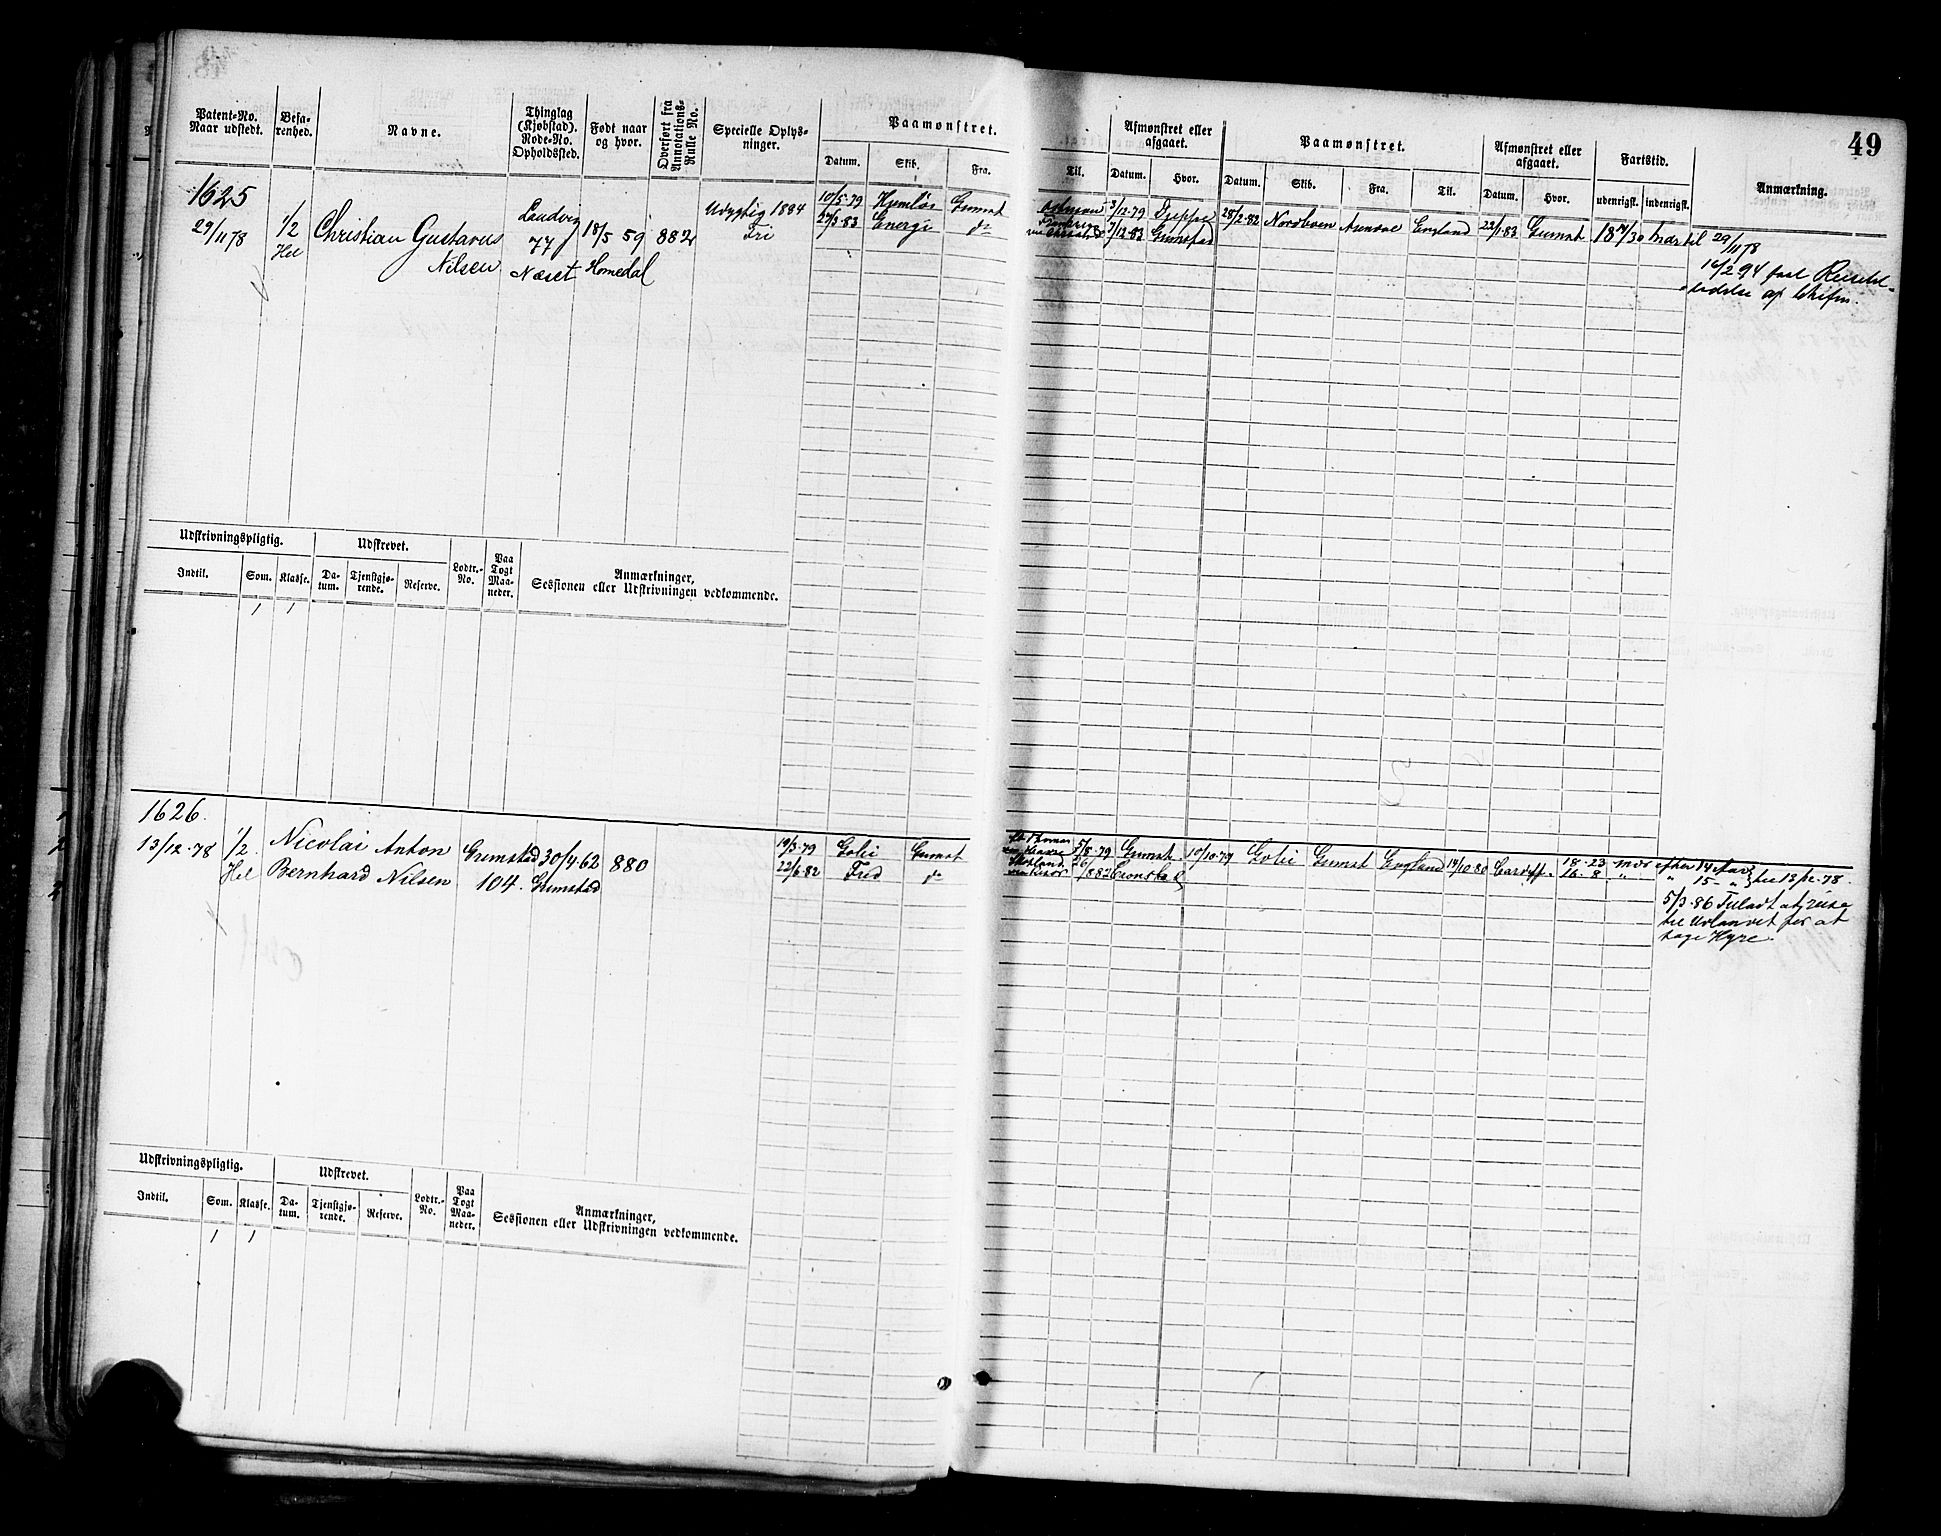 49
Patent-No. Naar udstedt.
Befarenhed.
Navne.
Thinglag (Kjøbstad). Rode-No. Opholdssted.
Født naar og hvor.
Overført fra Annotations-Rulle No.
Specielle Oplysninger.
Paamønstret.
Datum. Skib. Fra. Til.
Afmønstret eller afgaaet.
Datum. Hvor.
Paamønstret.
Datum. Skib. Fra. Til.
Afmønstret eller afgaaet.
Datum. Hvor.
Fartstid.
udenrigst. indenrigst.
Anmærkning.
1625
29/11 78
1/2
Hel
Christian Gustavus
Nilsen
Landvig
77
Næset
18/5 59
Homedal
882
Udygtig 1884
Fri
10/5-79
27/3-83 Energi
3/12-79 Dieppe
7/12-83 Grimstad
28/2-82 Nordboen England 22/1-83 Grimst
29/11 78
16/2 94
Udskrivningspligtig.
Udskrevet.
Indtil. Som. Klasse. Datum. Tjenstgjørende. Reserve. Lodtr.-No. Paa Togt Maaneder.
Anmærkninger,
Sessionen eller Udskrivningen vedkommende.
1 1
1626.
13/12-78
1/2
Hel
Nicolai Anton
Bernhard Nilsen
Grimstad
104.
30/4-62
Grimstad
880
19/3-79 Grimst
22/6-82 Fred do
5/8-79 Grimst 10/10-79 Grimst England 14/10-80 Cardiff 18-23
16-8
5/3-86 Tilladt at reise
til Udlandet for at
tage Hyre.
Udskrivningspligtig.
Udskrevet.
Indtil. Som. Klasse. Datum. Tjenstgjørende. Reserve. Lodtr.-No. Paa Togt Maaneder.
Anmærkninger,
Sessionen eller Udskrivningen vedkommende.
1 1